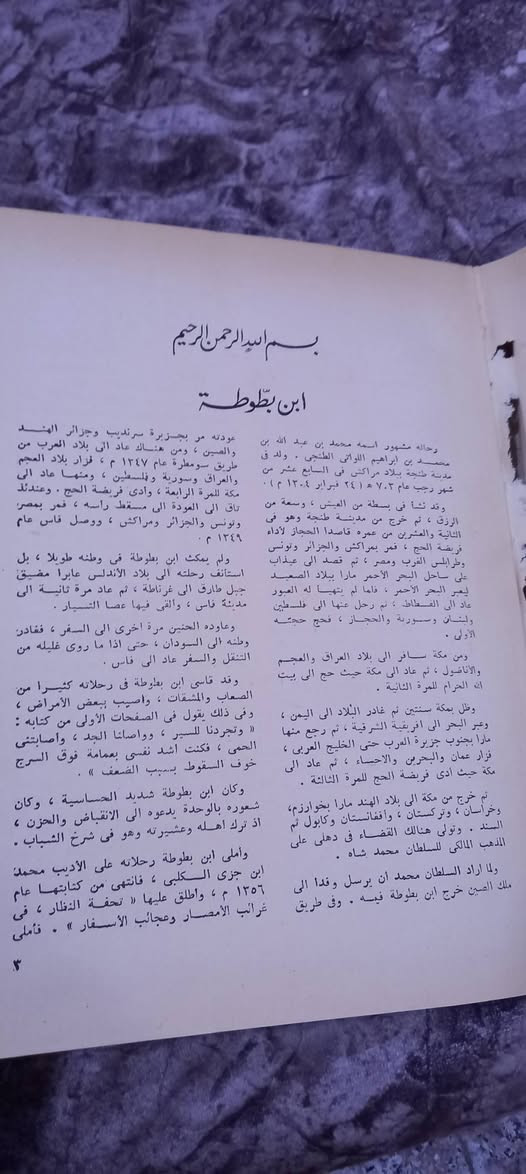 بسم الله الرحمن الرحيم
ابن بطّوطة
رحالة مشهور اسمه محمد بن عبد الله بن
محمد بن ابراهيم اللواتى الطنجى . ولد فى
مدينة طنجة ببلاد مراكش فى السابع عشر من
شهر رجب عام ٧٠٣ هـ (٢٤ فبراير ١٣٠٤ م) .
وقد نشأ فى بسطة من العيش ، وسعة من
الرزق ، ثم خرج من مدينة طنجة وهو فى
الثانية والعشرين من عمره قاصدا الحجاز لأداء
فريضة الحج ، فمر بمراكش والجزائر وتونس
وطرابلس الغرب ومصر ، ثم قصد الى عيذاب
على ساحل البحر الأحمر مارا ببلاد الصعيد
ليعبر البحر الأحمر ، فلما لم يتهيأ له العبور
عاد الى الفسطاط ، ثم رحل منها الى فلسطين
ولبنان وسورية والحجاز ، فحج حجته
الأولى .
ومن مكة سافر الى بلاد العراق والعجم
والأناضول ، ثم عاد الى مكة حيث حج الى بيت
الله الحرام للمرة الثانية .
وظل بمكة سنتين ثم غادر البلاد الى اليمن ،
وعبر البحر الى افريقية الشرقية ، ثم رجع منها
مارا بجنوب جزيرة العرب حتى الخليج العربى ،
فزار عمان والبحرين والاحساء ، ثم عاد الى
مكة حيث ادى فريضة الحج للمرة الثالثة .
ثم خرج من مكة الى بلاد الهند مارا بخوارزم،
وخراسان ، وتركستان ، وافغانستان وكابول ثم
السند . وتولى هنالك القضاء فى دهلى على
المذهب المالكى للسلطان محمد شاه .
ولما أراد السلطان محمد أن يرسل وفدا الى
ملك الصين خرج ابن بطوطة فيه . وفى طريق
عودته مر بجزيرة سرنديب وجزائر الهند
والصين ، ومن هناك عاد الى بلاد العرب من
طريق سومطرة عام ١٣٤٧ م ، فزار بلاد العجم
والعراق وسورية وفلسطين ، ومنها عاد الى
مكة للمرة الرابعة ، وأدى فريضة الحج . وعندئذ
تاق الى العودة الى مسقط رأسه ، فمر بمصر
وتونس والجزائر ومراكش ، ووصل فاس عام
١٣٤٩ م .
ولم يمكث ابن بطوطة فى وطنه طويلا ، بل
استأنف رحلته الى بلاد الأندلس عابرا مضيق
جبل طارق الى غرناطة ، ثم عاد مرة ثانية الى
مدينة فاس ، والقى فيها عصا التسيار .
وعاوده الحنين مرة اخرى الى السفر ، فغادر
وطنه الى السودان ، حتى اذا ما روى غليله من
التنقل والسفر عاد الى فاس .
وقد قاسى ابن بطوطة فى رحلاته كثيرا من
الصعاب والمشقات ، وأصيب ببعض الأمراض ،
وفى ذلك يقول فى الصفحات الأولى من كتابه :
« وتجردنا للسير ، وواصلنا الجد ، وأصابتنى
الحمى ، فكنت أشد نفسى بعمامة فوق السرج
خوف السقوط بسبب الضعف » .
وكان ابن بطوطة شديد الحساسية ، وكان
شعوره بالوحدة يدعوه الى الانقباض والحزن ،
اذ ترك اهله وعشيرته وهو فى شرخ الشباب .
وأملى ابن بطوطة رحلاته على الأديب محمد
ابن جزى الكلبى ، فانتهى من كتابتها عام
١٣٥٦ م ، وأطلق عليها « تحفة النظار ، فى
غرائب الأمصار وعجائب الأسفار » . فأملى
٣